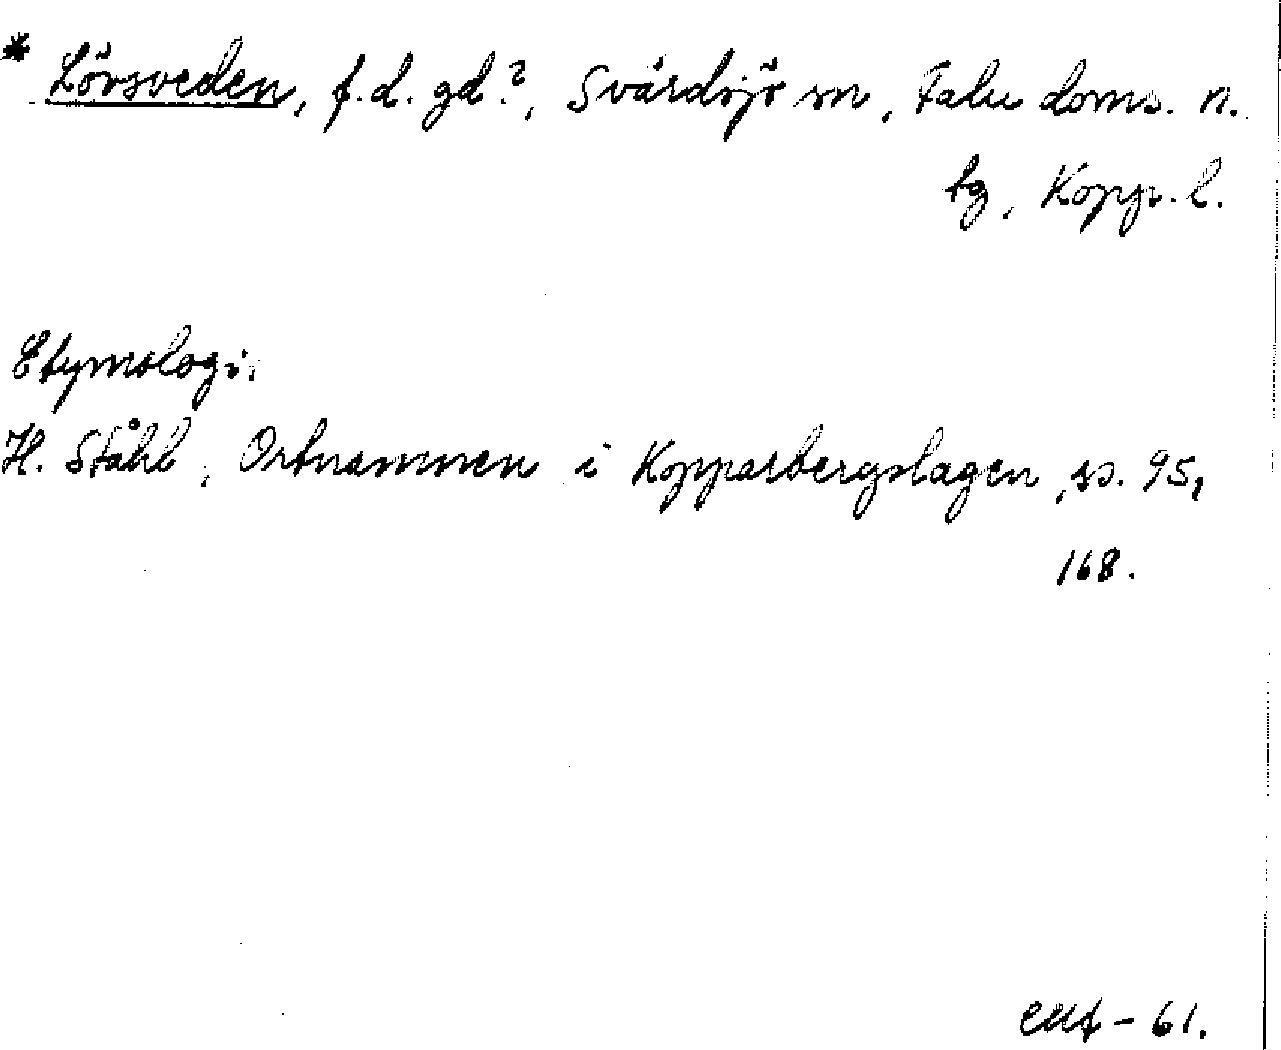 * Lövsveden, f.d. gd?, Svärdsjö sn, Falu doms. n.
tg, Kopp. l.
Etymologi.
H. Ståhl, Ortnamnen i Kopparbergslagen, s. 95,
168.
- 61.